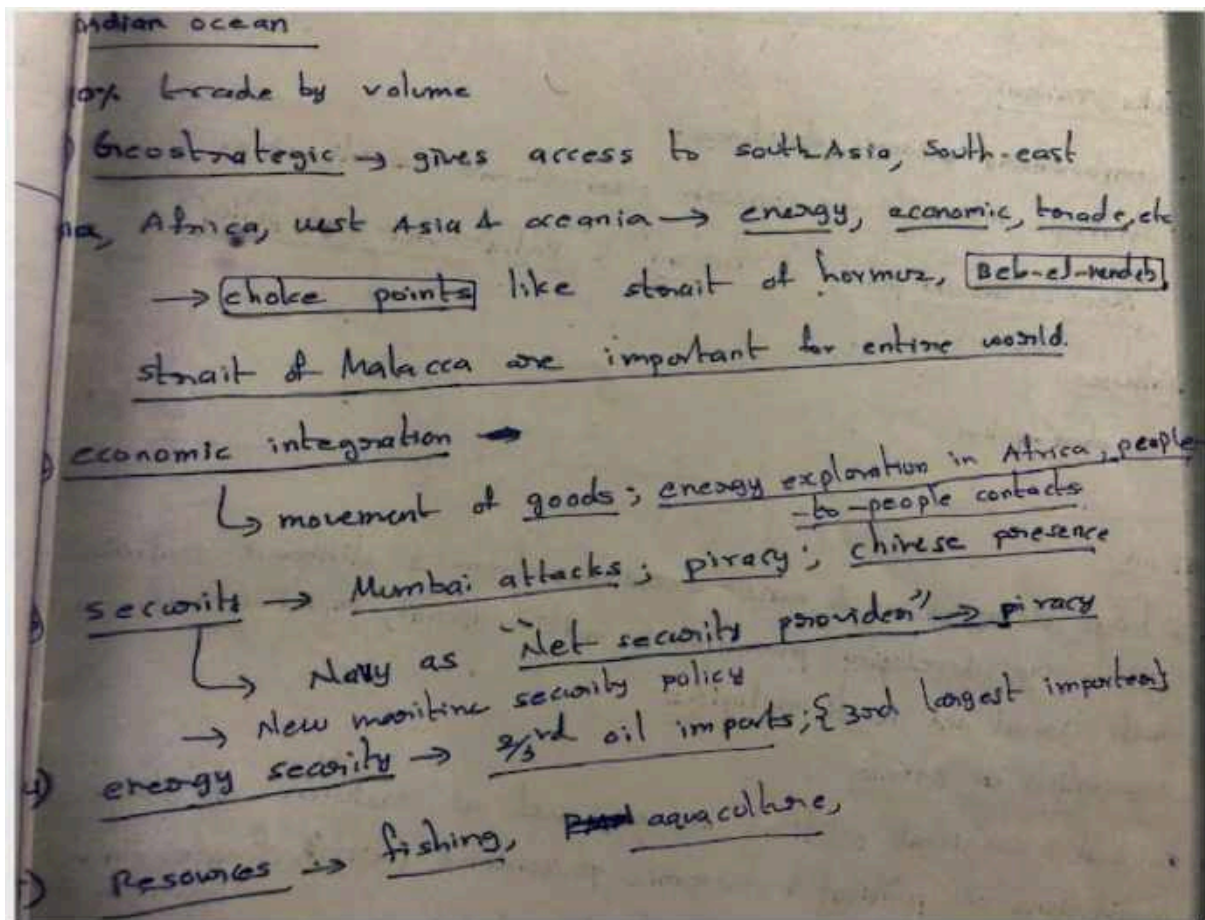 ndian ocean
0% trade by volume
) Geostrategic → gives access to south Asia, South-east
ia, Africa, west Asia & oceania → energy, economic, trade, etc
→ choke points like strait of hormuz, Beb-el-mendeb,
strait of Malacca are important for entire world.
) economic integration →
↳ movement of goods; energy exploration in Africa, people
-to-people contacts
) security → Mumbai attacks; piracy; chinese presence
↳ Navy as "Net security provider" → piracy
→ New maritime security policy
4) energy security → 2/3rd oil imports; {3rd largest importer}
) Resources → fishing, aquaculture,